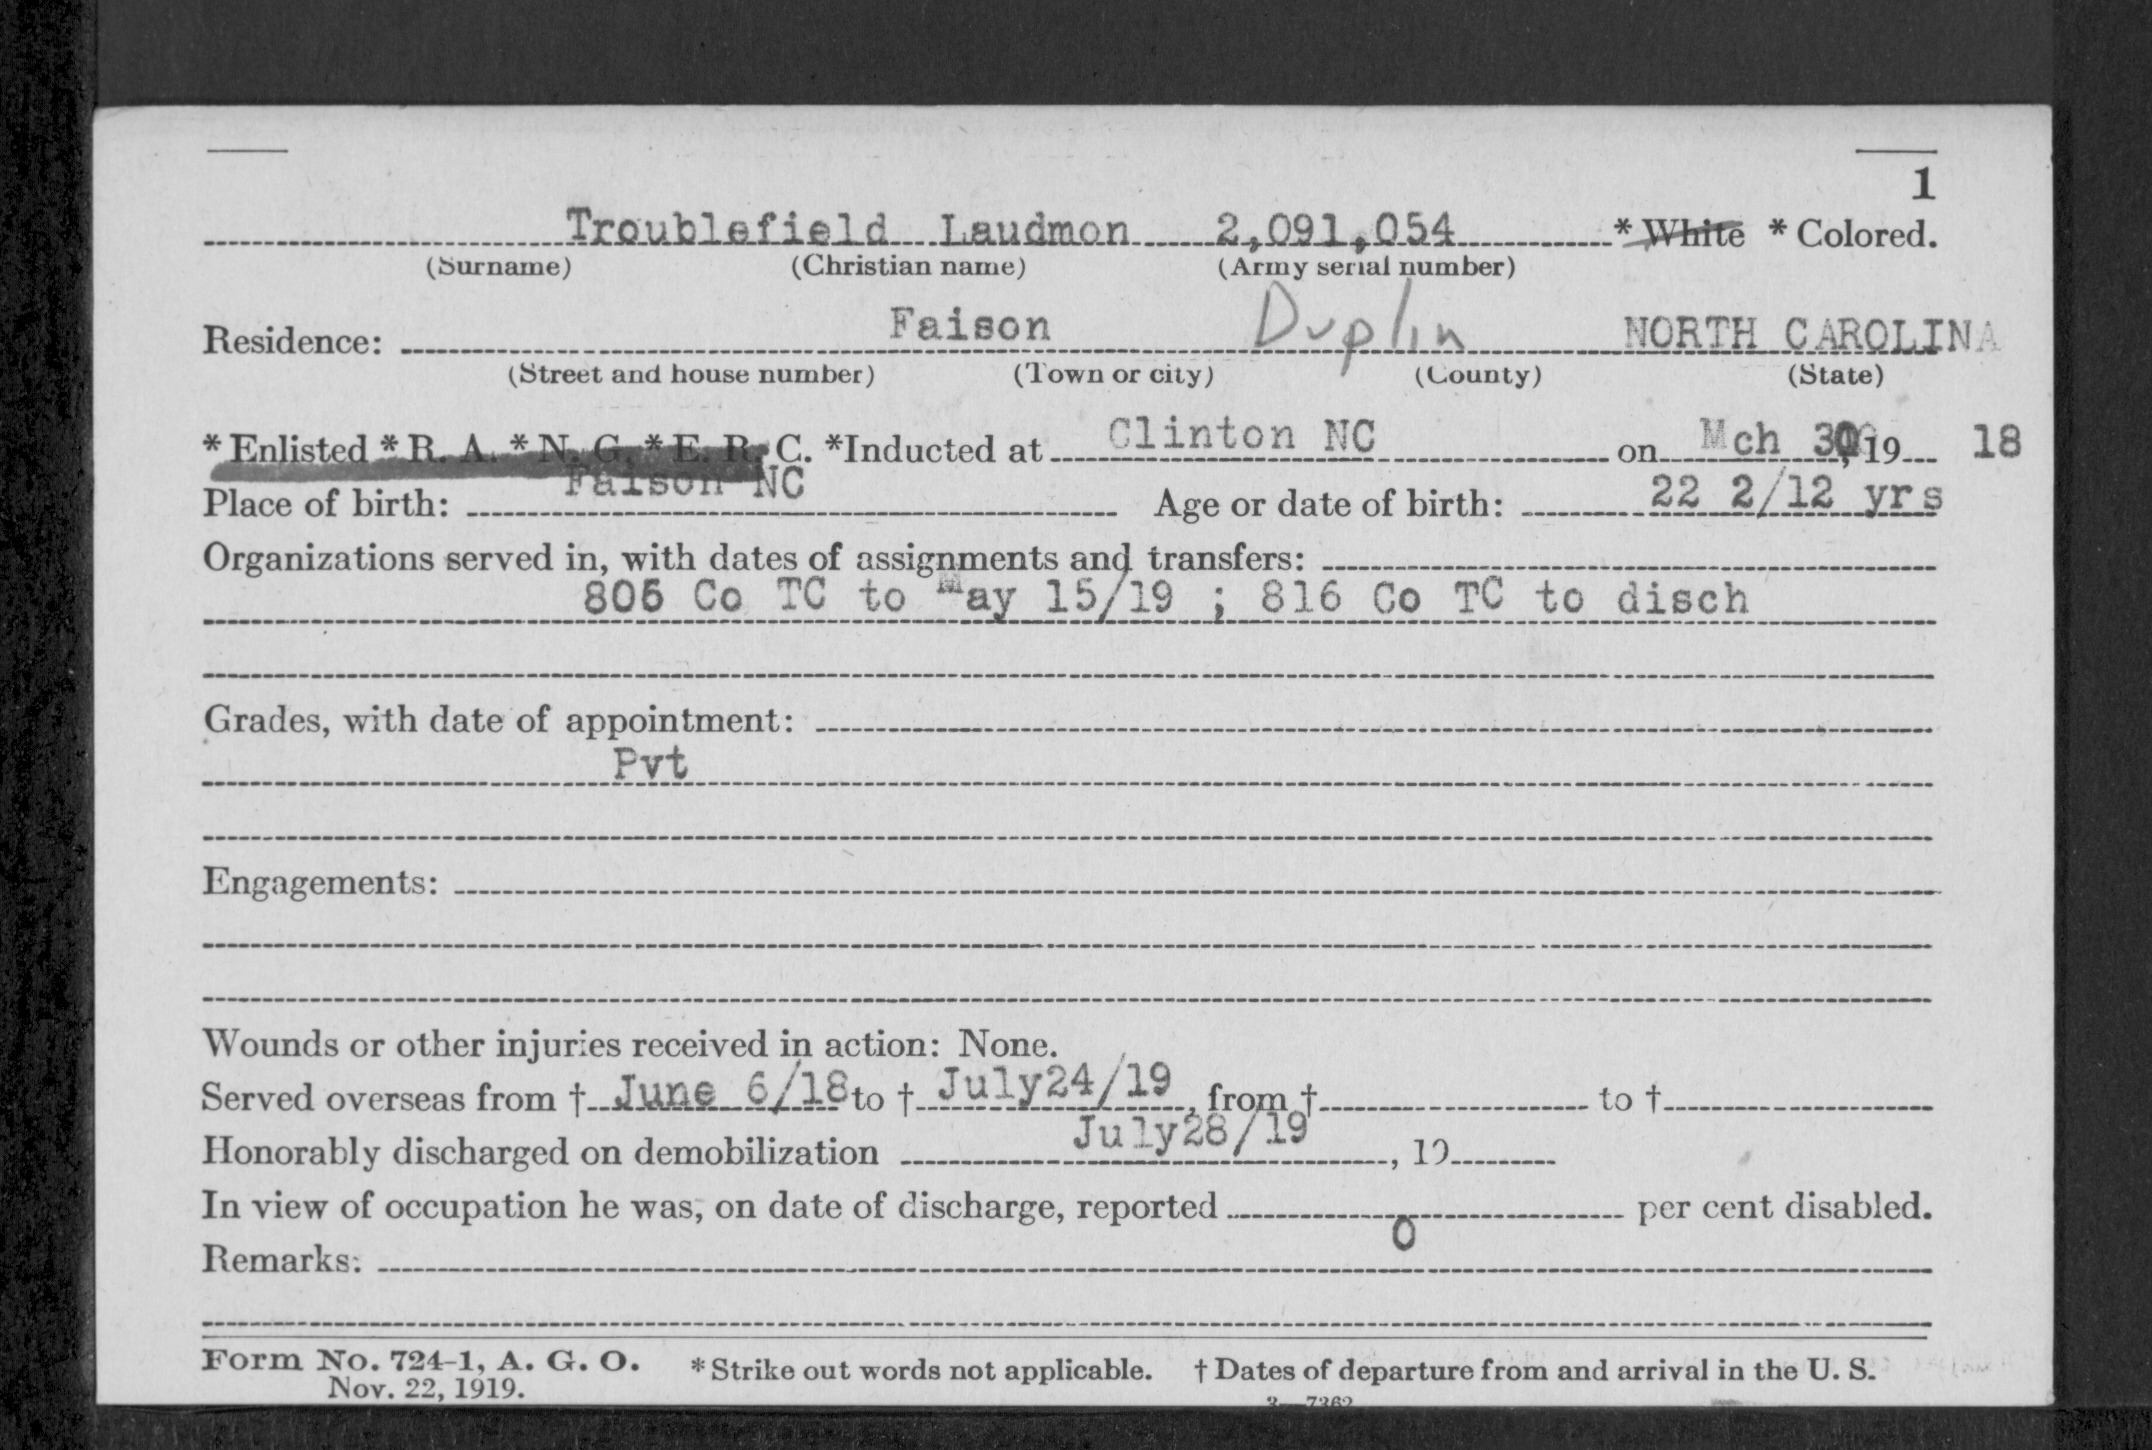 1
Troublefield Laudmon 2,091,054 * White * Colored.
(Surname) (Christian name) (Army serial number)
Residence: Faison Duplin NORTH CAROLINA
(Street and house number) (Town or city) (County) (State)
* Enlisted * R. A. * N. G. * E. R. C. *Inducted at Clinton NC on Mch , 19 18
Place of birth: Faison NC Age or date of birth: 22 2/12 yrs
Organizations served in, with dates of assignments and transfers:
Co TC to May 15/19 ; 816 Co TC to disch
Grades, with date of appointment:
Pvt
Engagements:
Wounds or other injuries received in action: None.
Served overseas from † June 6/18 to † July24/19, from † to †
Honorably discharged on demobilization July28/19, 19
In view of occupation he was, on date of discharge, reported 0 per cent disabled.
Remarks:
Form No. 724-1, A. G. O. * Strike out words not applicable. † Dates of departure from and arrival in the U. S.
Nov. 22, 1919.
3—7362